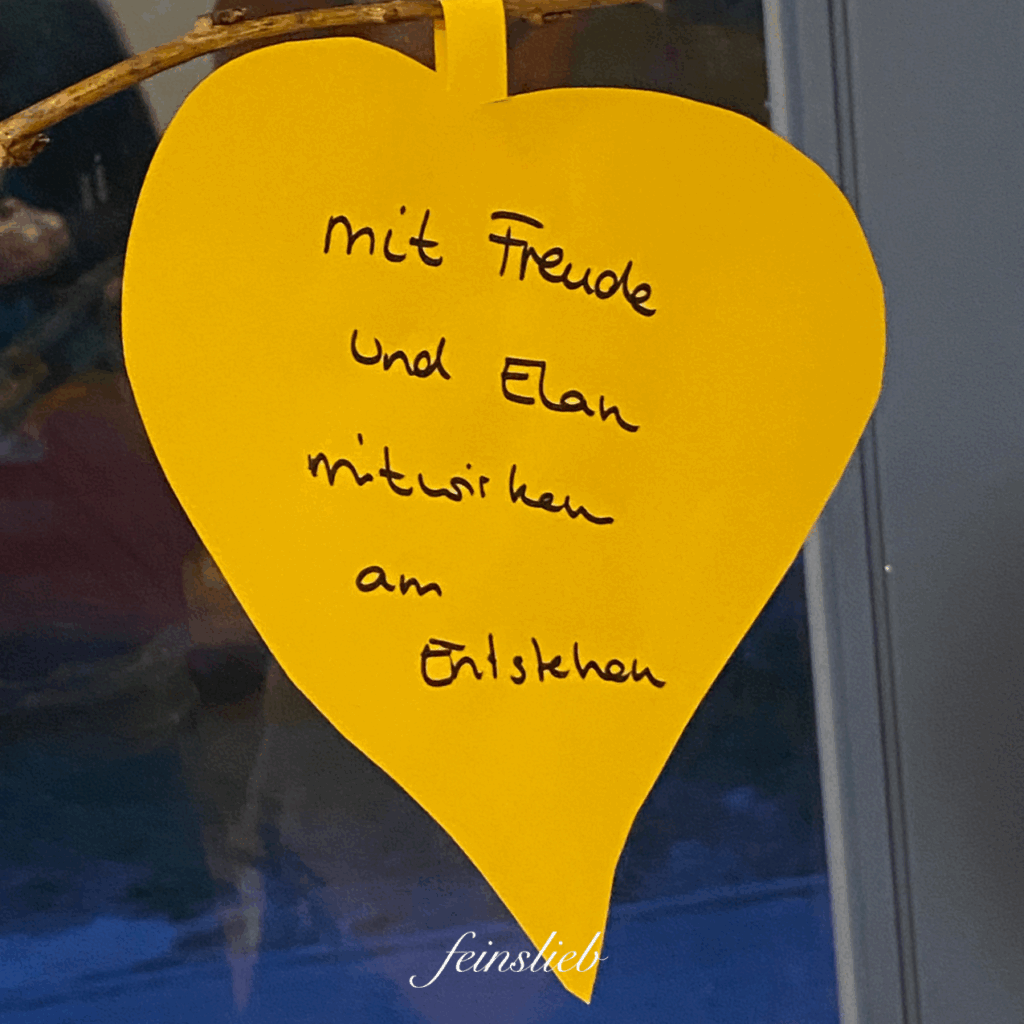 mit Freude
und Elan
mitwirken
am
Entstehen
feinslieb